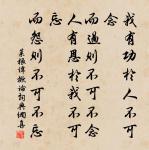 我有功於人不可
念
而過則不可不念
人有恩於我不可
忘
而怨則不可不忘
菜根譚概論詞典網喜